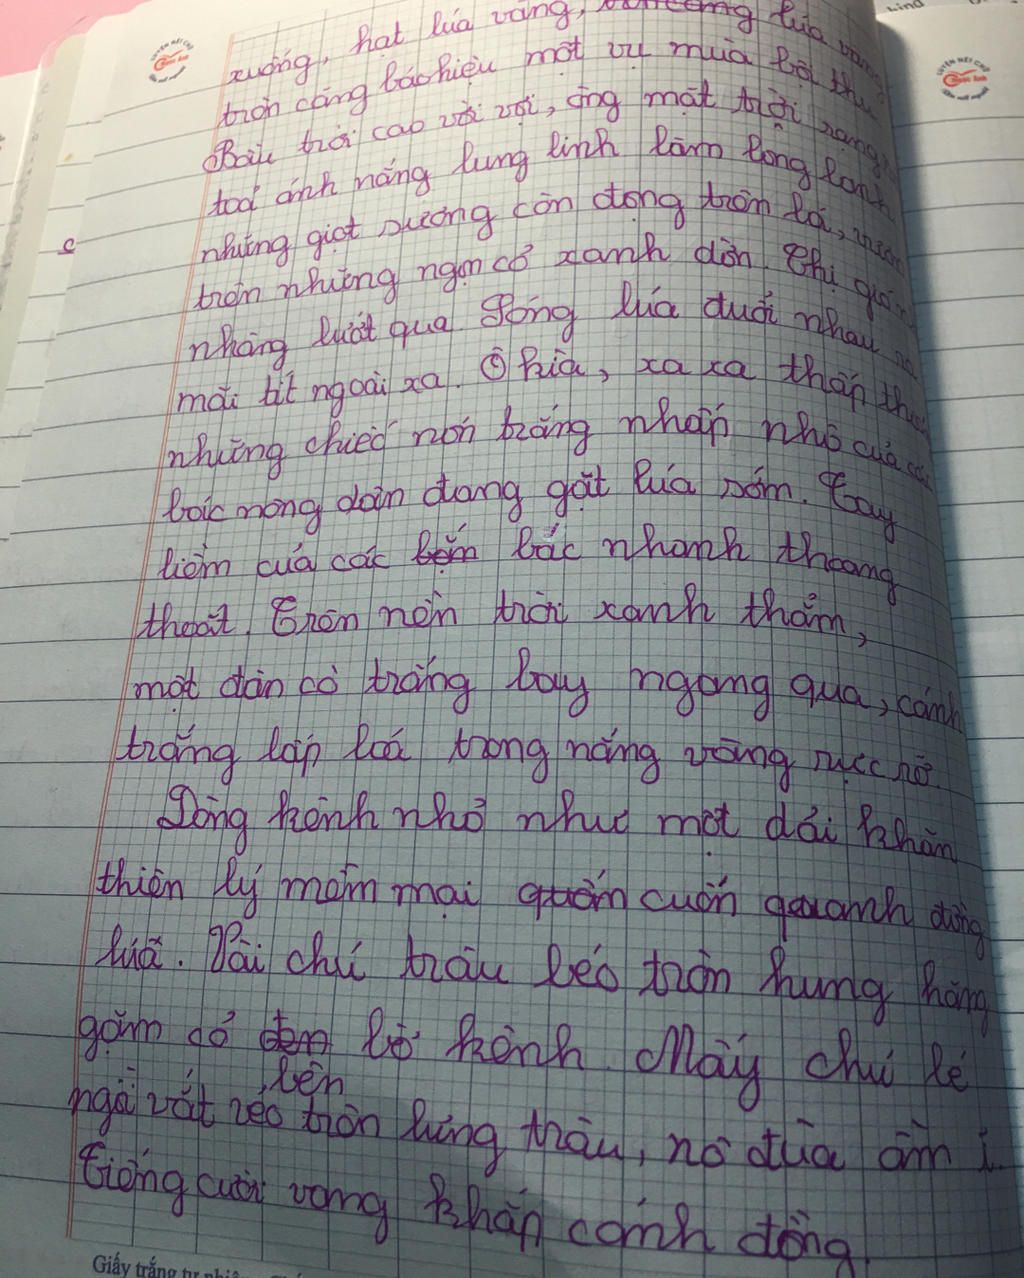 xuống, hạt lúa vàng,
tròn căng báo hiệu một vụ mùa bội thu
Bầu trời cao vời vợi, ông mặt trời
toả ánh nắng lung linh làm long lanh
những giọt sương còn đọng trên lá,
trên những ngọn cỏ xanh dờn. Chị
nhàng lướt qua. Sóng lúa đuổi nhau
mãi tít ngoài xa. Ô kìa, xa xa thấp
những chiếc nón trắng nhấp nhô của các
bác nông dân đang gặt lúa sớm. Tay
liềm của các bác nhanh thoang
thoát. Trên nền trời xanh thẳm,
một đàn cò trắng bay ngang qua, cánh
trắng lấp loá trong nắng vàng rực rỡ.
Dòng kênh nhỏ như một dải khăn
thiên lý mềm mại cuốn quanh đồng
lúa. Vài chú trâu béo tròn hung hăng
gặm cỏ bờ kênh. Mấy chú bé
bên
ngồi vắt vẻo trên lưng trâu, nô đùa ầm ĩ.
Tiếng cười vang khắp cánh đồng.
Giấy trắng tự nhiên